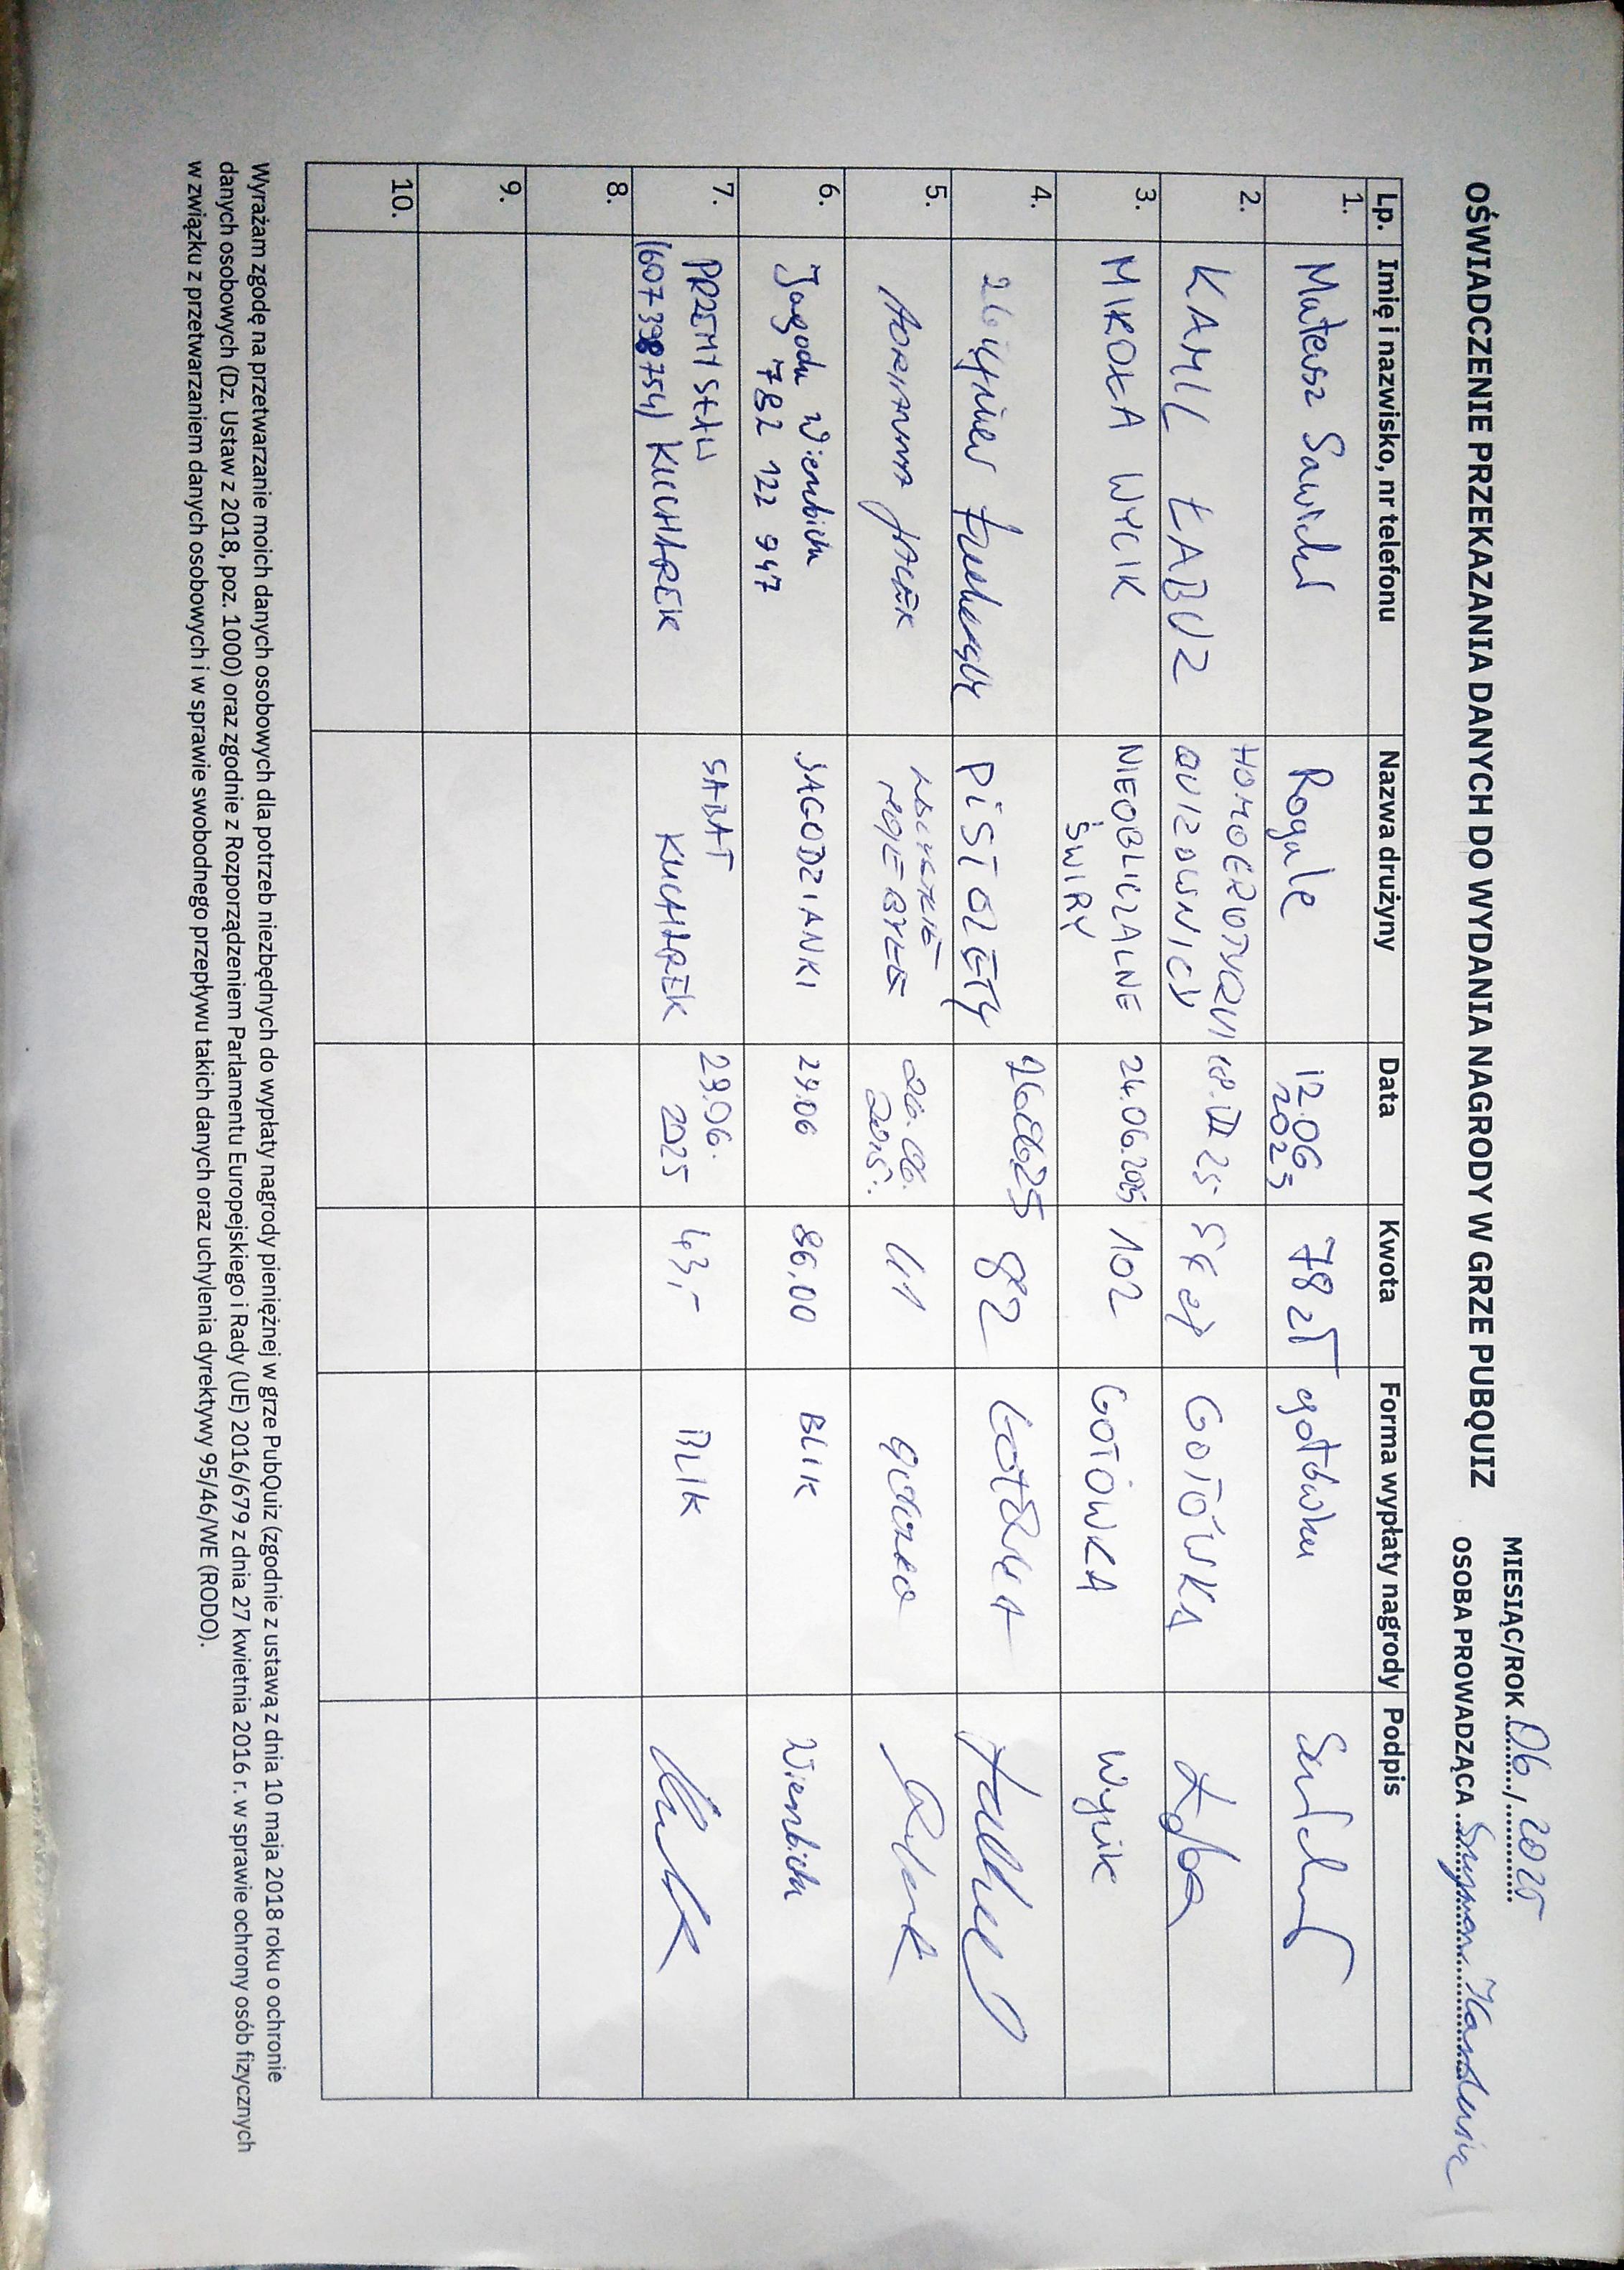 OŚWIADCZENIE PRZEKAZANIA DANYCH DO WYDANIA NAGRODY W GRZE PUBQUIZ
MIESIĄC/ROK 06 / 2025
OSOBA PROWADZĄCA Szymon
Lp. Imię i nazwisko, nr telefonu Nazwa drużyny Data Kwota Forma wypłaty nagrody Podpis
1. Mateusz Sawicki Rogale 12.06 2025 78 zł gotówka
2. KAMIL ŁABUZ HOMOEROTYCZNI QUIZOWNICY 18.VI 25 gotówka
3. MIKOŁA WYCIK NIEOBLICZALNE ŚWIRY 24.06.2025 102 GOTÓWKA Wycik
4. PISTOLETY 260625 82 Gotówka
5. JACEK 26.06. 2025. 41
6. Jagoda Wierzbicka 782 122 947 JAGODZIANKI 29.06 86,00 BLIK Wierzbicka
7. PRZEMYSŁAW (607 398 754) KUCHAREK SABAT KUCHAREK 29.06. 2025 43,- BLIK
8.
9.
10.
Wyrażam zgodę na przetwarzanie moich danych osobowych dla potrzeb niezbędnych do wypłaty nagrody pieniężnej w grze PubQuiz (zgodnie z ustawą z dnia 10 maja 2018 roku o ochronie
danych osobowych (Dz. Ustaw z 2018, poz. 1000) oraz zgodnie z Rozporządzeniem Parlamentu Europejskiego i Rady (UE) 2016/679 z dnia 27 kwietnia 2016 r. w sprawie ochrony osób fizycznych
w związku z przetwarzaniem danych osobowych i w sprawie swobodnego przepływu takich danych oraz uchylenia dyrektywy 95/46/WE (RODO).